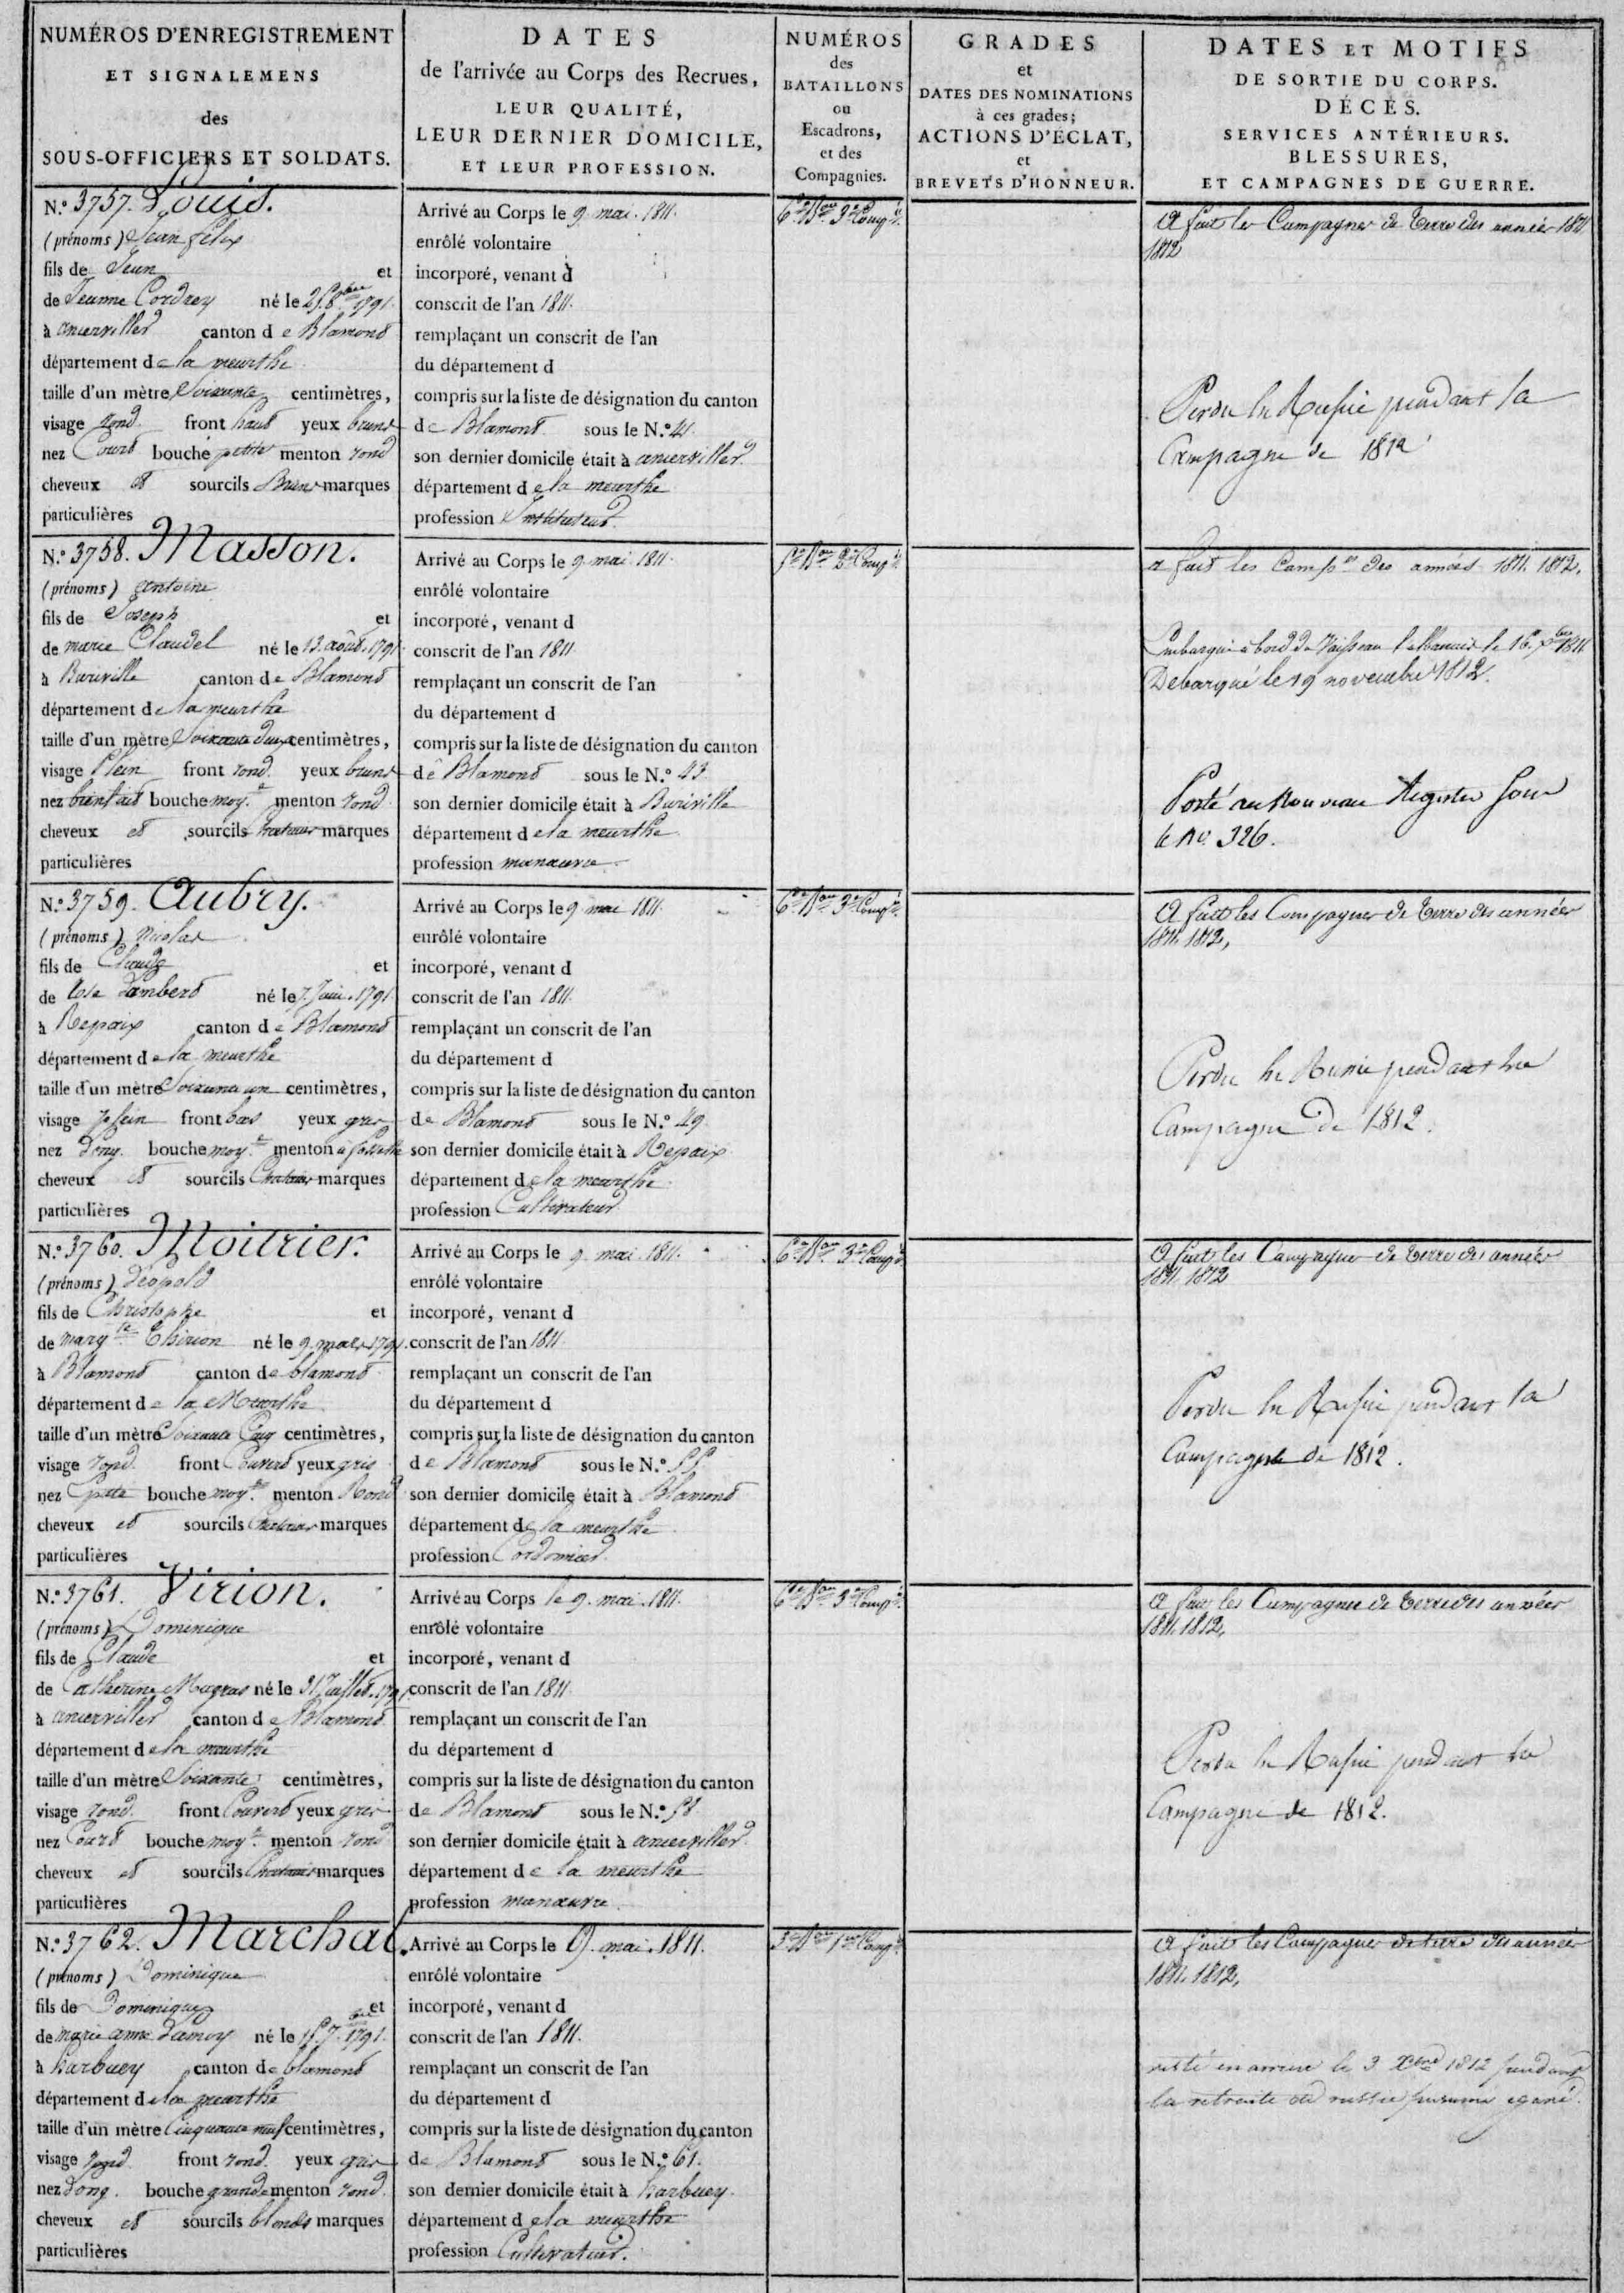 NUMÉROS D'ENREGISTREMENT
ET SIGNALEMENS
des
SOUS-OFFICIERS ET SOLDATS.
DATES
de l'arrivée au Corps des Recrues,
LEUR QUALITÉ,
LEUR DERNIER DOMICILE,
ET LEUR PROFESSION.
NUMÉROS
des
BATAILLONS
ou
Escadrons,
et des
Compagnies.
GRADES
et
DATES DES NOMINATIONS
à ces grades;
ACTIONS D'ÉCLAT,
et
BREVETS D'HONNEUR.
DATES ET MOTIFS
DE SORTIE DU CORPS.
DÉCÈS.
SERVICES ANTÉRIEURS.
BLESSURES,
ET CAMPAGNES DE GUERRE.
N.º 3757. Louis.
(prénoms) Jean félix
fils de Jean et
de Jeanne Cordrey né le 25. 8bre 1791.
à ancerviller canton de Blamont
département de la meurthe
taille d'un mètre Soixante centimètres,
visage rond. front haut yeux bruns
nez Court bouche petite menton rond
cheveux et sourcils Bruns marques
particulières
Arrivé au Corps le 9. mai. 1811.
enrôlé volontaire
incorporé, venant d
conscrit de l'an 1811.
remplaçant un conscrit de l'an
du département d
compris sur la liste de désignation du canton
de Blamont sous le N.º 41.
son dernier domicile était à ancerviller
département de la meurthe
profession Instituteur.
6e Bon 3e Compie
A fait les Campagnes de terre des années 1811
1812
Perdu en Russie pendant la
Campagne de 1812
N.º 3758. Masson.
(prénoms) antoine
fils de Joseph et
de marie Claudel né le 13. août. 1791
à Buriville canton de Blamont
département de la meurthe
taille d'un mètre Soixante deux centimètres,
visage Plein front rond. yeux bruns
nez bienfait bouche moy.e menton rond
cheveux et sourcils Chatains marques
particulières
Arrivé au Corps le 9. mai. 1811.
enrôlé volontaire
incorporé, venant d
conscrit de l'an 1811
remplaçant un conscrit de l'an
du département d
compris sur la liste de désignation du canton
de Blamont sous le N.º 43
son dernier domicile était à Buriville
département de la meurthe
profession manœuvre
Bon 2e Compie
a fait les Camp.es des années 1811. 1812.
Embarqué à bord du Vaisseau l'albanais le 16. Xbre 1811
Debarqué le 19 novembre 1812.
Porté au Nouveau Registre sous
le No. 326.
N.º 3759. Aubry.
(prénoms) Nicolas
fils de Claude et
de Rose Lambert né le 7. Juin. 1791
à Repaix canton de Blamont
département de la meurthe
taille d'un mètre Soixante un centimètres,
visage plein front bas yeux gris
nez Long. bouche moy.e menton à fossette
cheveux et sourcils Chatains marques
particulières
Arrivé au Corps le 9. mai 1811.
enrôlé volontaire
incorporé, venant d
conscrit de l'an 1811.
remplaçant un conscrit de l'an
du département d
compris sur la liste de désignation du canton
de Blamont sous le N.º 49.
son dernier domicile était à Repaix
département de la meurthe
profession Cultivateur
6e Bon 3e Compie
A fait les Campagnes de terre des années
1811. 1812,
Perdu en Russie pendant la
Campagne de 1812.
N.º 3760. Moitrier.
(prénoms) Léopold
fils de Christophe et
de marg.te Thirion né le 9. mars 1791.
à Blamont canton de blamont
département de la Meurthe
taille d'un mètre Soixante Cinq centimètres,
visage rond. front Couvert yeux gris
nez bouche moy.e menton Rond
cheveux et sourcils Chatains marques
particulières
Arrivé au Corps le 9. mai. 1811.
enrôlé volontaire
incorporé, venant d
conscrit de l'an 1811
remplaçant un conscrit de l'an
du département d
compris sur la liste de désignation du canton
de Blamont sous le N.º 55
son dernier domicile était à Blamont
département de la meurthe
profession Cordonnier.
6e Bon 3e Compie
A fait les Campagnes de terre des années
1811. 1812
Perdu en Russie pendant la
Campagne de 1812.
N.º 3761. Virion.
(prénoms) Dominique
fils de Claude et
de Catherine Magras né le 31 Juillet. 1791.
à ancerviller canton de Blamont
département de la meurthe
taille d'un mètre Soixante centimètres,
visage rond. front Couvert yeux gris
nez Court bouche moy.e menton rond
cheveux et sourcils Chatains marques
particulières
Arrivé au Corps le 9. mai. 1811.
enrôlé volontaire
incorporé, venant d
conscrit de l'an 1811
remplaçant un conscrit de l'an
du département d
compris sur la liste de désignation du canton
de Blamont sous le N.º 58
son dernier domicile était à ancerviller
département de la meurthe
profession manœuvre
6e Bon 3e Compie
A fait les Campagnes de terre des années
1811. 1812,
Perdu en Russie pendant la
Campagne de 1812.
N.º 3762. Marchal.
(prénoms) Dominique
fils de Dominique et
de marie anne Lamoy né le 15. 7bre 1791.
à harbuey canton de blamont
département de la meurthe
taille d'un mètre Cinquante neuf centimètres,
visage rond front rond. yeux gris
nez Long. bouche grande menton rond.
cheveux et sourcils blonds marques
particulières
Arrivé au Corps le 9. mai. 1811.
enrôlé volontaire
incorporé, venant d
conscrit de l'an 1811.
remplaçant un conscrit de l'an
du département d
compris sur la liste de désignation du canton
de Blamont sous le N.º 61.
son dernier domicile était à harbuey.
département de la meurthe
profession Cultivateur.
3e Bon 1ere Compie
A fait les Campagnes de terre des années
1811. 1812,
resté en arriere le 3 Xbre 1812 pendant
la retraite de russie présumé egaré.